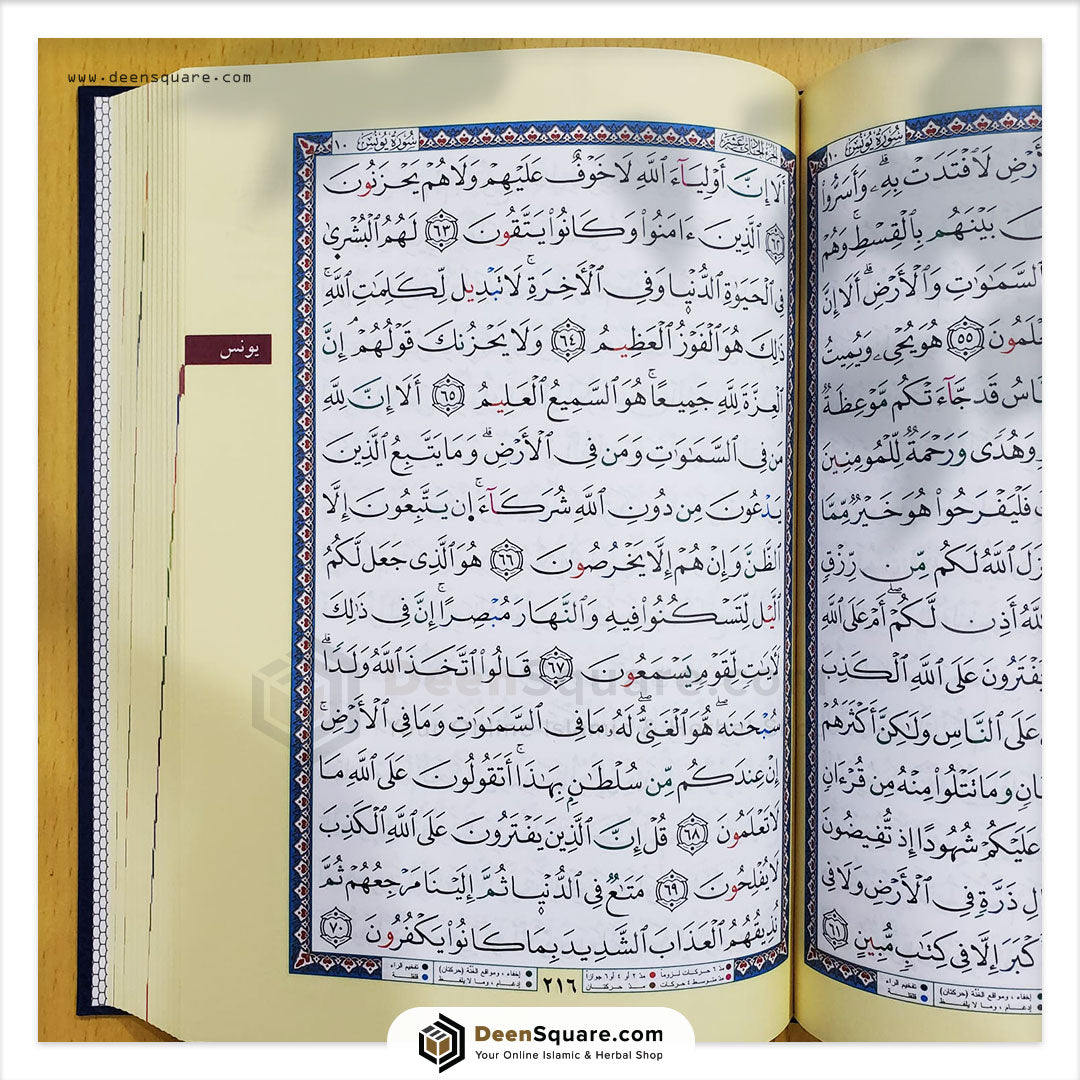 www.deensquare.com
سُورَةُ يُونُسَ ١٠
الجزء الحادي عشر
سُورَةُ يُونُسَ ١٠
رْضِ لَافْتَدَتْ بِهِۦۗ وَأَسَرُّوا۟
بَيْنَهُم بِٱلْقِسْطِ وَهُمْ
ٱلسَّمَٰوَٰتِ وَٱلْأَرْضِۗ أَلَآ إِنَّ
يَعْلَمُونَ ٥٥ هُوَ يُحْىِۦ وَيُمِيتُ
ٱلنَّاسُ قَدْ جَآءَتْكُم مَّوْعِظَةٌ
وَهُدًى وَرَحْمَةٌ لِّلْمُؤْمِنِينَ
فَلْيَفْرَحُوا۟ هُوَ خَيْرٌ مِّمَّا
أَنزَلَ ٱللَّهُ لَكُم مِّن رِّزْقٍ
ٱللَّهُ أَذِنَ لَكُمْۖ أَمْ عَلَى ٱللَّهِ
يَفْتَرُونَ عَلَى ٱللَّهِ ٱلْكَذِبَ
عَلَى ٱلنَّاسِ وَلَٰكِنَّ أَكْثَرَهُمْ
شَأْنٍ وَمَا تَتْلُوا۟ مِنْهُ مِن قُرْءَانٍ
عَلَيْكُمْ شُهُودًا إِذْ تُفِيضُونَ
مِثْقَالِ ذَرَّةٍ فِى ٱلْأَرْضِ وَلَا فِى
أَكْبَرَ إِلَّا فِى كِتَٰبٍ مُّبِينٍ ٦١
أَلَآ إِنَّ أَوْلِيَآءَ ٱللَّهِ لَا خَوْفٌ عَلَيْهِمْ وَلَا هُمْ يَحْزَنُونَ
٦٢ ٱلَّذِينَ ءَامَنُوا۟ وَكَانُوا۟ يَتَّقُونَ ٦٣ لَهُمُ ٱلْبُشْرَىٰ
فِى ٱلْحَيَوٰةِ ٱلدُّنْيَا وَفِى ٱلْءَاخِرَةِۚ لَا تَبْدِيلَ لِكَلِمَٰتِ ٱللَّهِۚ
ذَٰلِكَ هُوَ ٱلْفَوْزُ ٱلْعَظِيمُ ٦٤ وَلَا يَحْزُنكَ قَوْلُهُمْۘ إِنَّ
ٱلْعِزَّةَ لِلَّهِ جَمِيعًاۚ هُوَ ٱلسَّمِيعُ ٱلْعَلِيمُ ٦٥ أَلَآ إِنَّ لِلَّهِ
مَن فِى ٱلسَّمَٰوَٰتِ وَمَن فِى ٱلْأَرْضِۗ وَمَا يَتَّبِعُ ٱلَّذِينَ
يَدْعُونَ مِن دُونِ ٱللَّهِ شُرَكَآءَۚ إِن يَتَّبِعُونَ إِلَّا
ٱلظَّنَّ وَإِنْ هُمْ إِلَّا يَخْرُصُونَ ٦٦ هُوَ ٱلَّذِى جَعَلَ لَكُمُ
ٱلَّيْلَ لِتَسْكُنُوا۟ فِيهِ وَٱلنَّهَارَ مُبْصِرًاۚ إِنَّ فِى ذَٰلِكَ
لَءَايَٰتٍ لِّقَوْمٍ يَسْمَعُونَ ٦٧ قَالُوا۟ ٱتَّخَذَ ٱللَّهُ وَلَدًاۗ
سُبْحَٰنَهُۥۖ هُوَ ٱلْغَنِىُّۖ لَهُۥ مَا فِى ٱلسَّمَٰوَٰتِ وَمَا فِى ٱلْأَرْضِۚ
إِنْ عِندَكُم مِّن سُلْطَٰنٍۭ بِهَٰذَآۚ أَتَقُولُونَ عَلَى ٱللَّهِ مَا
لَا تَعْلَمُونَ ٦٨ قُلْ إِنَّ ٱلَّذِينَ يَفْتَرُونَ عَلَى ٱللَّهِ ٱلْكَذِبَ
لَا يُفْلِحُونَ ٦٩ مَتَٰعٌ فِى ٱلدُّنْيَا ثُمَّ إِلَيْنَا مَرْجِعُهُمْ ثُمَّ
نُذِيقُهُمُ ٱلْعَذَابَ ٱلشَّدِيدَ بِمَا كَانُوا۟ يَكْفُرُونَ ٧٠
يونس
مدّ ٦ حركات لزوماً مدّ ٢ أو ٤ أو ٦ جوازاً إخفاء، ومواقع الغُنّة (حركتان) تفخيم الراء
مدّ متوسط ٤ حركات مدّ حركتان إدغام، وما لا يُلفظ قلقلة
٢١٦
إخفاء، ومواقع الغُنّة (حركتان) تفخيم الراء
إدغام، وما لا يُلفظ قلقلة
DeenSquare.com
DeenSquare.com
Your Online Islamic & Herbal Shop